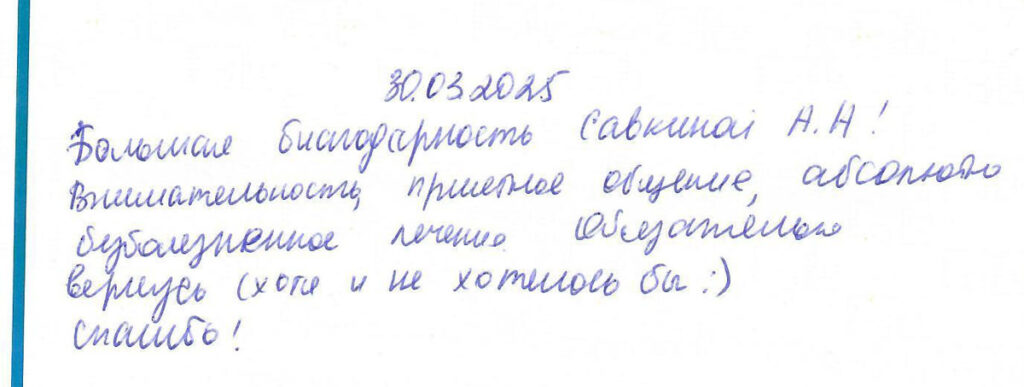 30.03.2025
Большая благодарность Савкиной А.Н!
Внимательность, приятное общение, абсолютно
безболезненное лечение. Обязательно
вернусь (хотя и не хотелось бы :)
Спасибо!